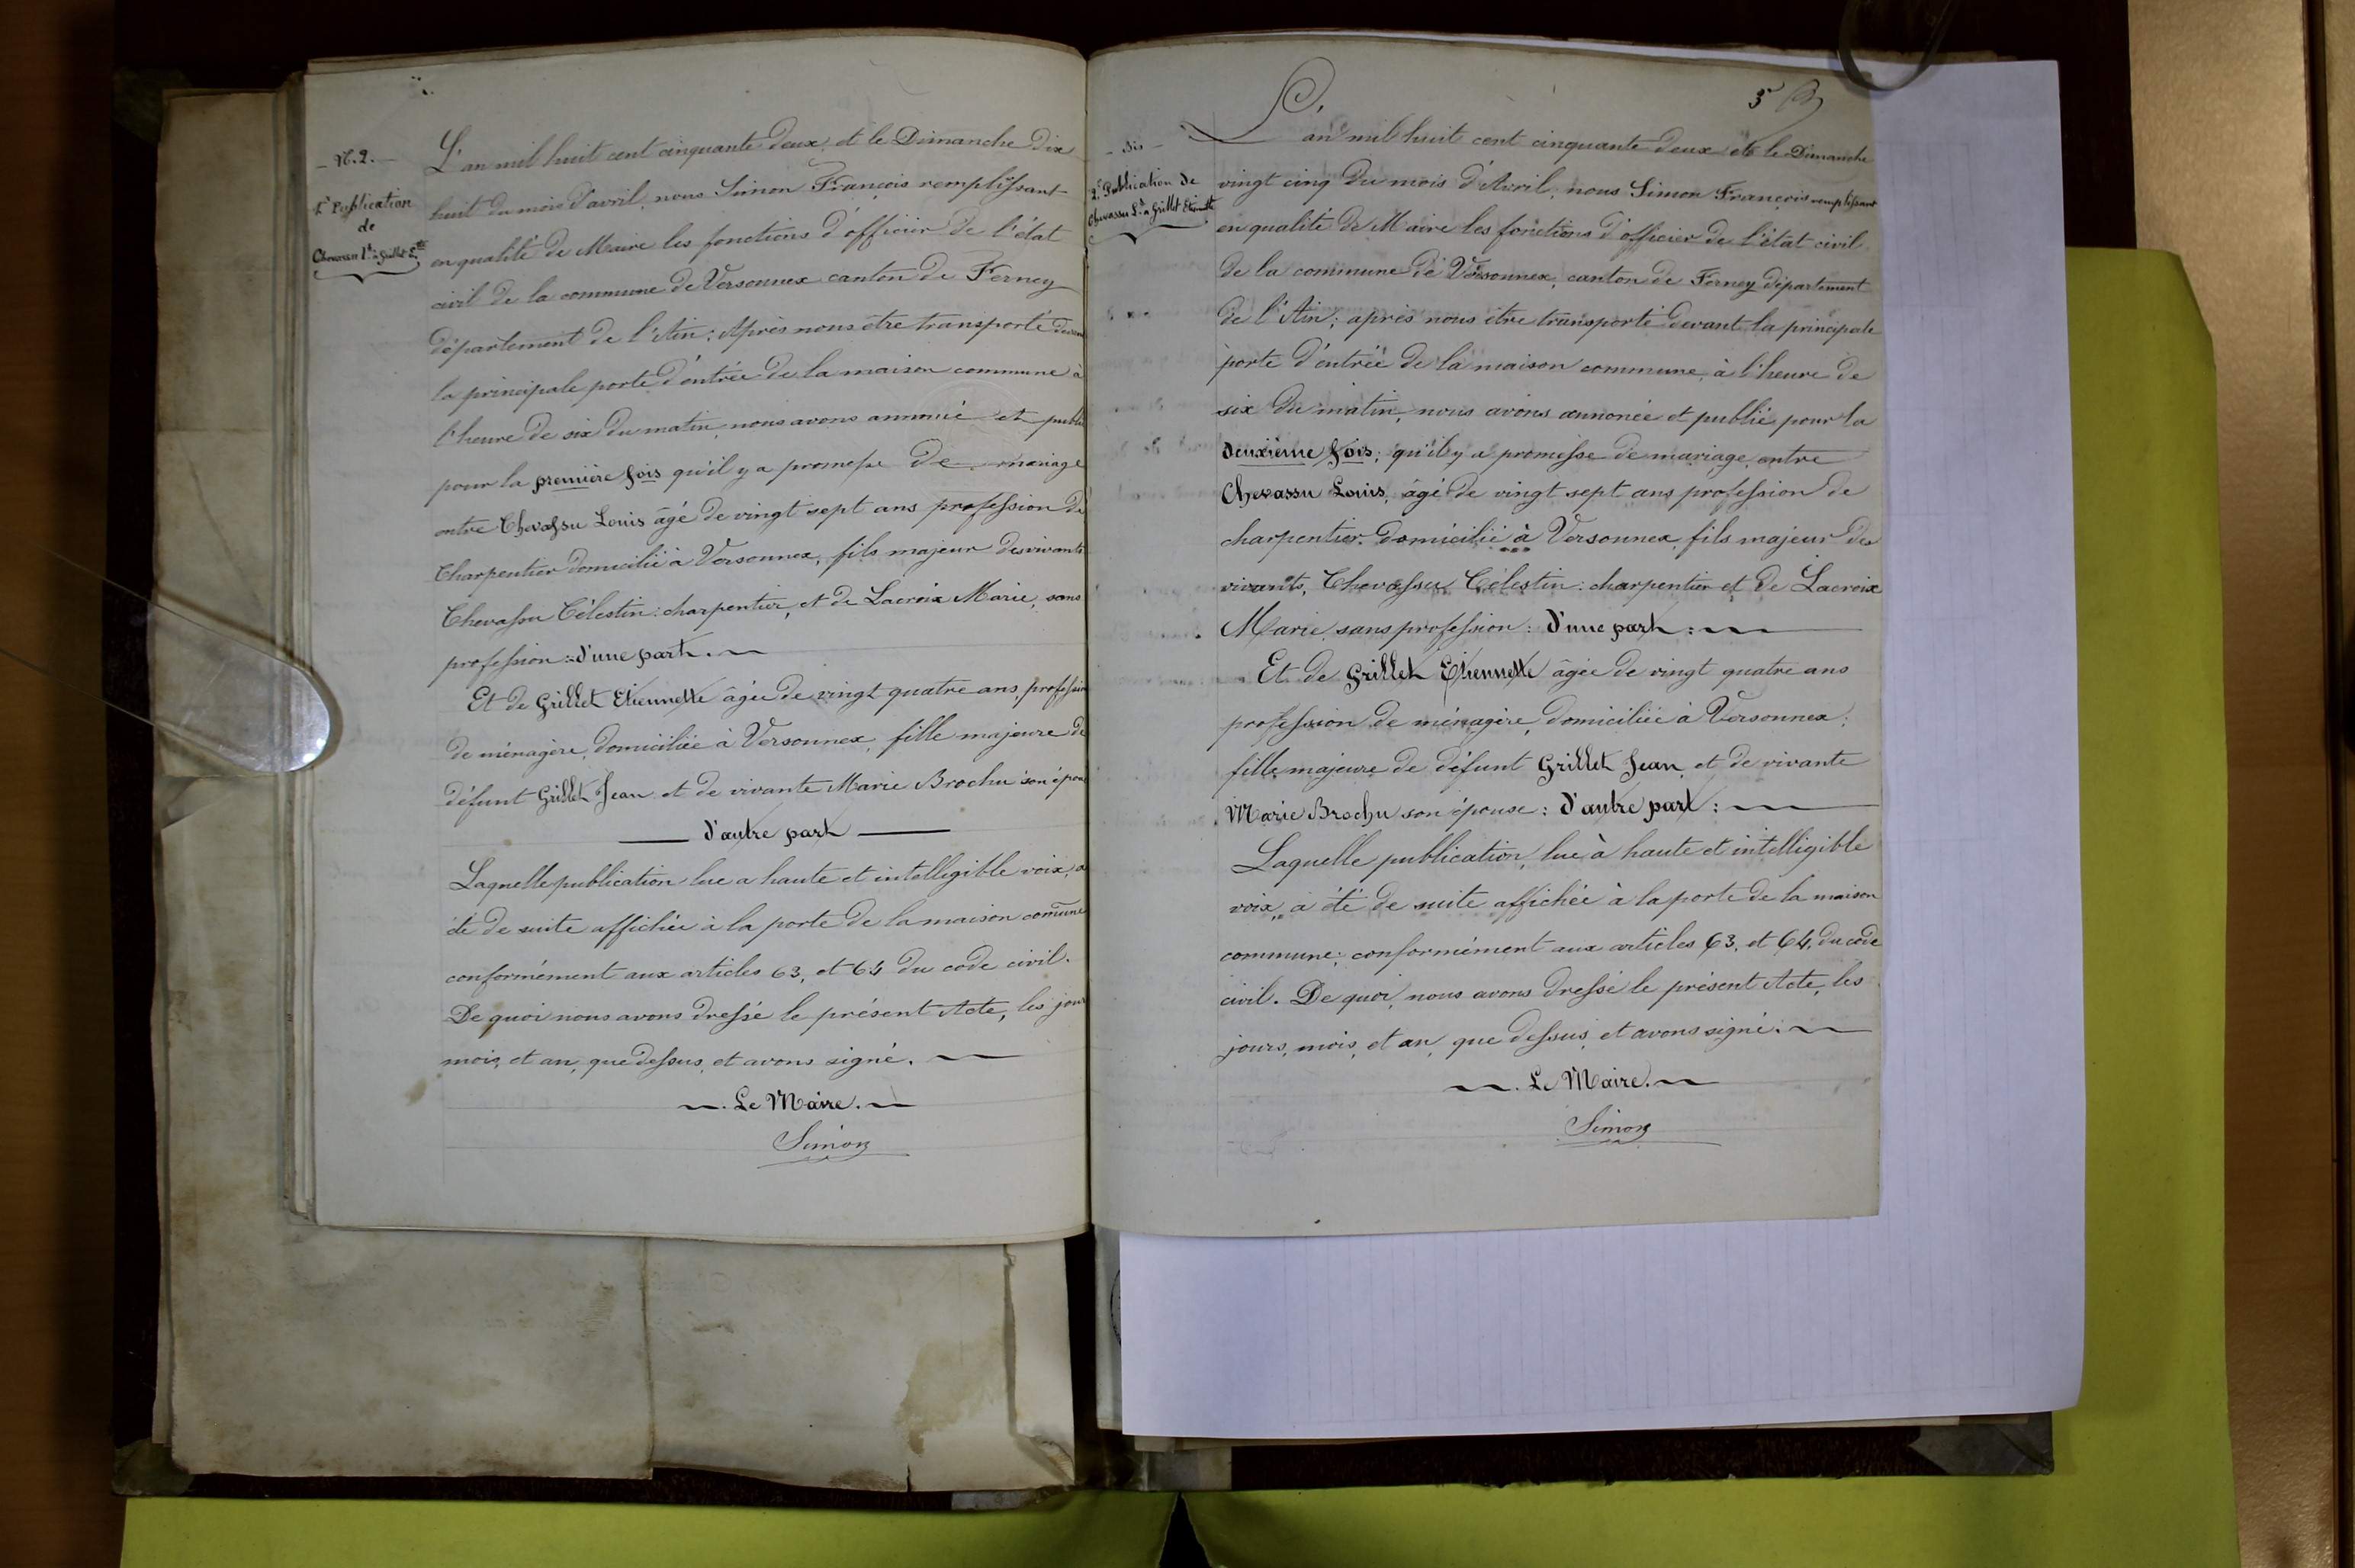 - N. 2. -
1.e Publication
de
Chevassu L.s à Grillet E.tte
L'an mil huit cent cinquante deux, et le Dimanche dix
huit du mois d'avril, nous Simon François remplissant
en qualité de Maire les fonctions d'officier de l'état
civil de la commune de Versonnex canton de Ferney
département de l'Ain; Après nous être transporté devant
la principale porte d'entrée de la maison commune à
l'heure de six du matin, nous avons annoncé et publié
pour la première fois qu'il y a promesse de mariage
entre Chevassu Louis âgé de vingt sept ans profession de
Charpentier domicilié à Versonnex, fils majeur des vivants
Chevassu Célestin: charpentier, et de Lacroix Marie, sans
profession: d'une part. ~
Et de Grillet Etiennette âgée de vingt quatre ans, profession
de ménagère, domiciliée à Versonnex, fille majeure de
défunt Grillet Jean et de vivante Marie Brochu son épouse
— d'autre part —
Laquelle publication lue a haute et intelligible voix, a
été de suite affichée à la porte de la maison com̄une
conformément aux articles 63, et 64 du code civil.
De quoi nous avons dressé le présent Acte, les jour
mois, et an, que dessus, et avons signé. ~
~. Le Maire. ~
Simon
5
- bis -
2.e Publication de
Chevassu L.s à Grillet Etiennette
L'an mil huit cent cinquante deux et le Dimanche
vingt cinq du mois d'Avril, nous Simon François remplissant
en qualité de Maire les fonctions d'officier de l'état civil
de la commune de Versonnex, canton de Ferney département
de l'Ain; après nous être transporté devant la principale
porte d'entrée de la maison commune, à l'heure de
six du matin, nous avons annoncé et publié, pour la
deuxième fois; qu'il y a promesse de mariage, entre
Chevassu Louis, âgé de vingt sept ans profession de
charpentier domicilié à Versonnex, fils majeur des
vivants, Chevassu Célestin: charpentier et de Lacroix
Marie, sans profession: d'une part: ~
Et de Grillet Etiennette âgée de vingt quatre ans
profession de ménagère, domiciliée à Versonnex;
fille majeure de défunt Grillet Jean, et de vivante
Marie Brochu son épouse: d'autre part: ~
Laquelle publication, lue à haute et intelligible
voix, a été de suite affichée à la porte de la maison
commune; conformément aux articles 63, et 64, du code
civil. De quoi, nous avons dressé le présent Acte, les
jours, mois, et an, que dessus, et avons signé: ~
~. Le Maire. ~
Simon